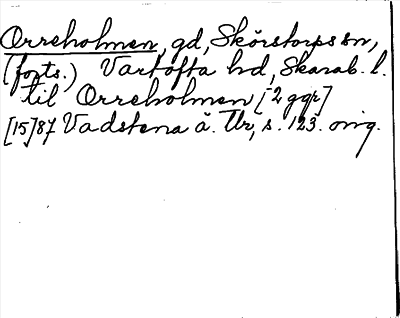 Orreholmen, gd, Skörstorps sn,
(forts.) Vartofta hd, Skarab. l.
til Orreholmen [-2 ggr]
[15]87 Vadstena ä. Ur, s. 123. orig.